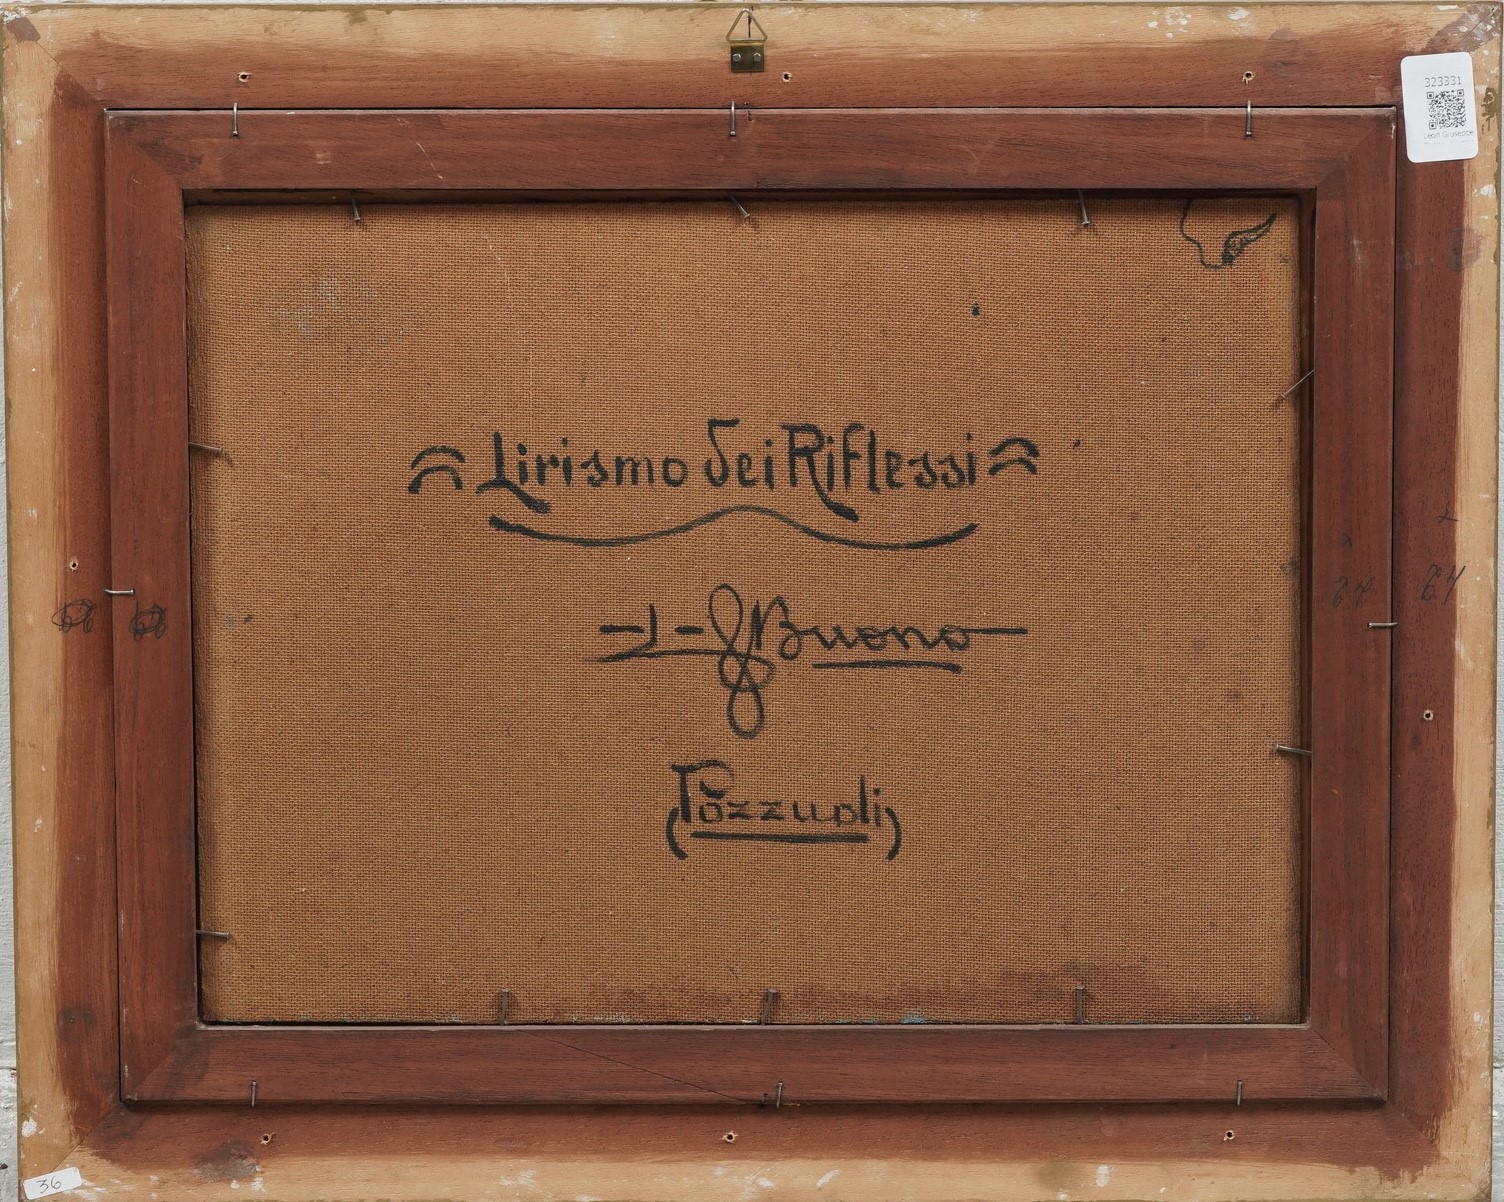 323331
Leon Giuseppe
Lirismo dei Riflessi
L. Buono
(Pozzuoli)
24 24
36